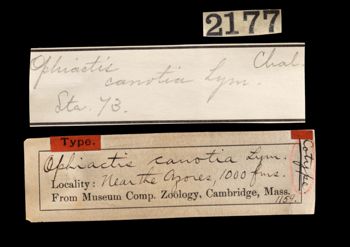 2177
Ophiactis Chal.
canotia Lym.
Sta. 73.
Type.
Cotype
Ophiactis canotia Lym.
Locality: Near the Azores, 1000 fms.
From Museum Comp. Zoölogy, Cambridge, Mass.
1154.